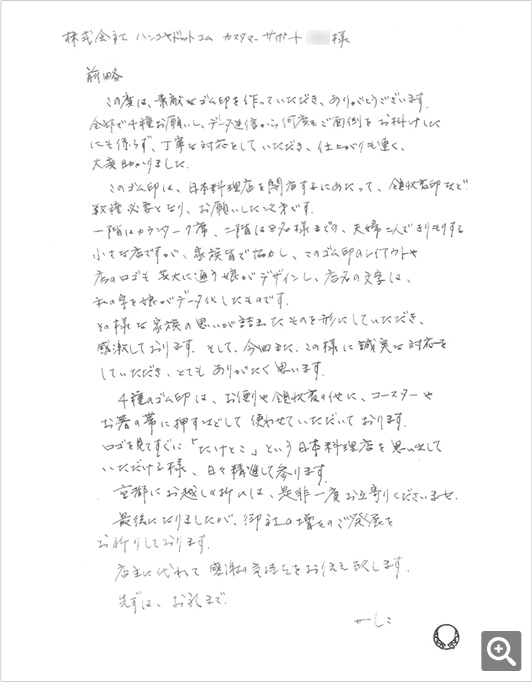 株式会社 ハンコヤドットコム カスタマーサポート 様
前略
この度は、素敵なゴム印を作っていただき、ありがとうございます。
全部で4種お願いし、データ送信から何度もご面倒をお掛けした
にも係らず、丁寧な対応をしていただき、仕上がりも速く、
大変助かりました。
このゴム印は、日本料理店を開店するにあたって、領収書印など
数種必要となり、お願いした次第です。
一階はカウンター7席、二階は8名様までの、夫婦二人できりもりする
小さな店ですが、家族皆で協力し、このゴム印のレイアウトや
店のロゴも芸大に通う娘がデザインし、店名の文字は、
私の字を娘がデータ化したものです。
その様な家族の思いが詰まったものを形にしていただき、
感激しております。そして、今回また、この様に誠実な対応を
していただき、とてもありがたく思います。
4種のゴム印は、お便りや領収書の他に、コースターや
お箸の帯に押すなどして使わせていただいております。
ロゴを見てすぐに「たけとこ」という日本料理店を思い出して
いただける様、日々精進して参ります。
京都にお越しの折りは、是非一度お立寄りくださいませ。
最後になりましたが、御社の増々のご発展を
お祈りしております。
店主に代わって感謝の気持ちをお伝え致します。
先ずは、お礼まで。
かしこ